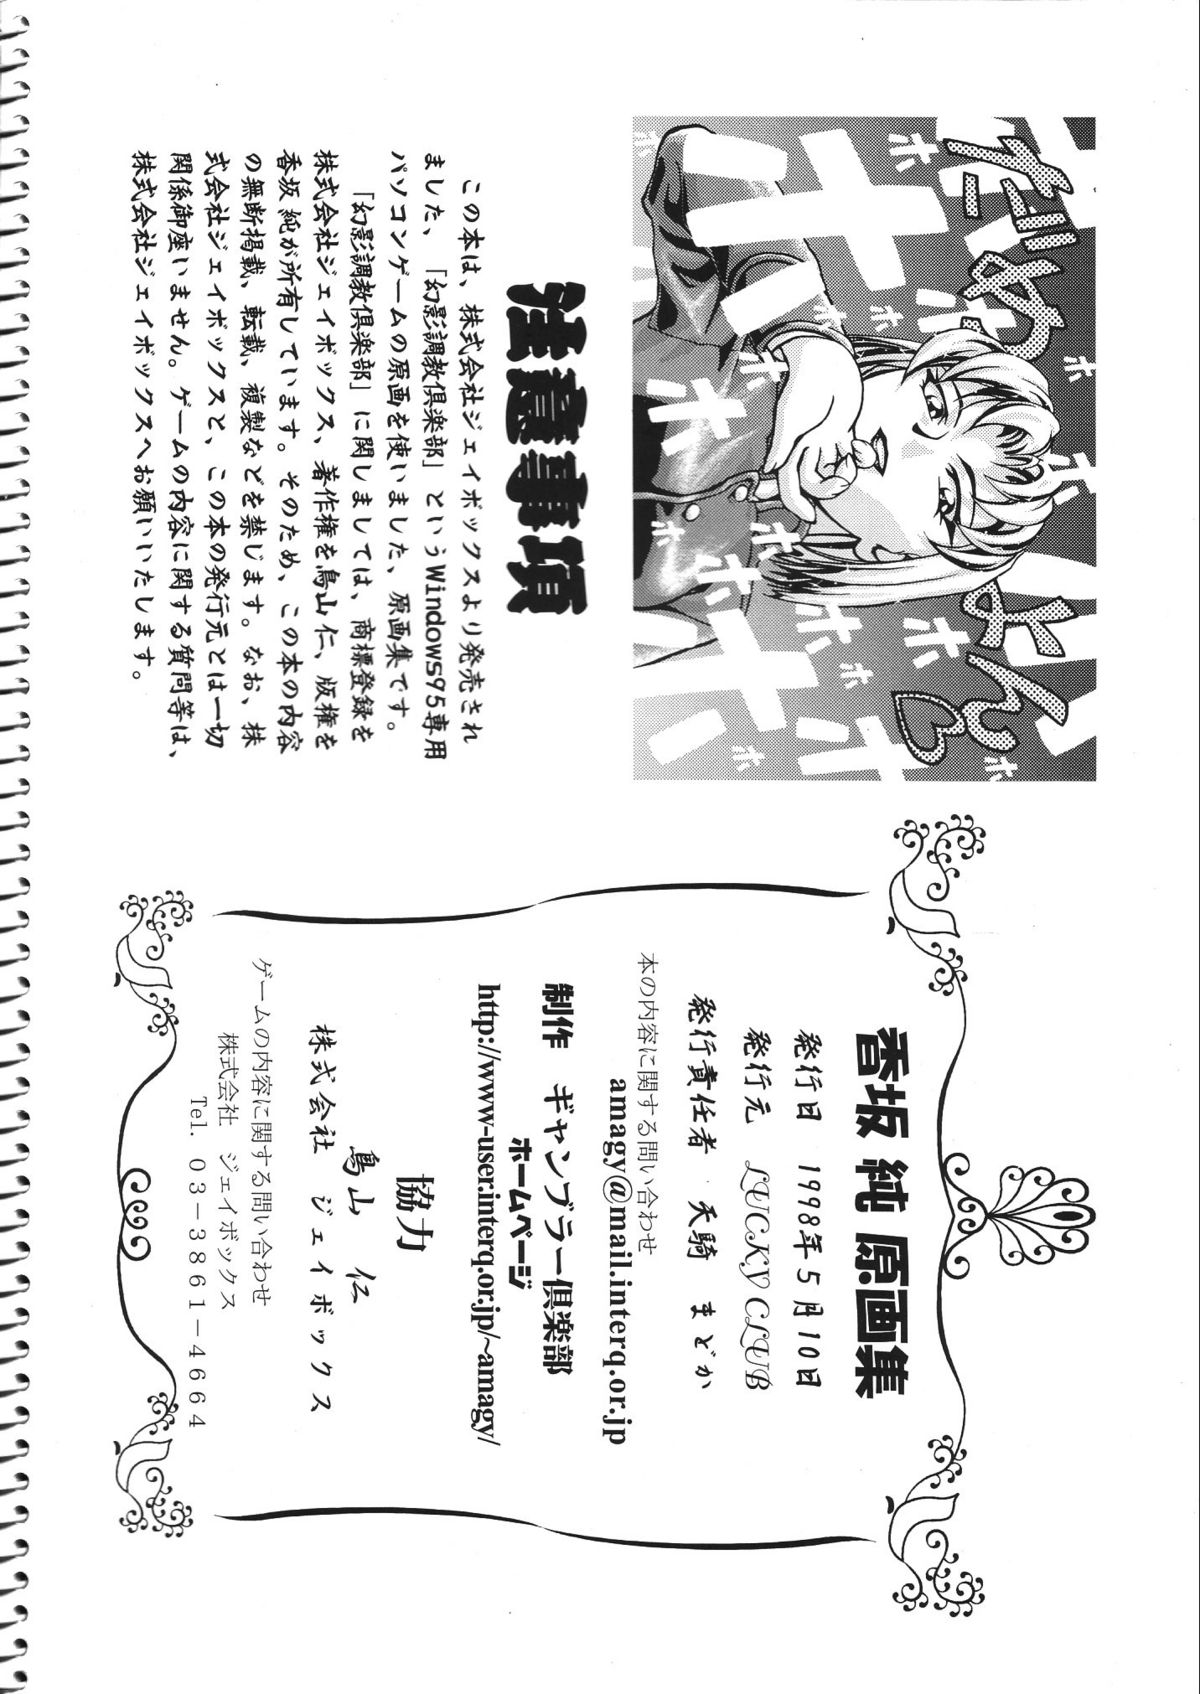 だめよん
ホ
ホ
ホ
ホ
ホ
ホ
ホ
ホ
ホ
注意事項
この本は、株式会社ジェイボックスより発売され
ました、「幻影調教倶楽部」というWindows95専用
パソコンゲームの原画を使いました、原画集です。
「幻影調教倶楽部」に関しましては、商標登録を
株式会社ジェイボックス、著作権を鳥山 仁、版権を
香坂 純が所有しています。そのため、この本の内容
の無断掲載、転載、複製などを禁じます。なお、株
式会社ジェイボックスと、この本の発行元とは一切
関係御座いません。ゲームの内容に関する質問等は、
株式会社ジェイボックスへお願いいたします。
香坂 純 原画集
発行日 1998年5月10日
発行元 LUCKY CLUB
発行責任者 天騎 まどか
本の内容に関する問い合わせ
amagy@mail.interq.or.jp
制作 ギャンブラー倶楽部
ホームページ
http://www-user.interq.or.jp/~amagy/
協力
鳥山 仁
株式会社 ジェイボックス
ゲームの内容に関する問い合わせ
株式会社 ジェイボックス
Tel. 03-3861-4664